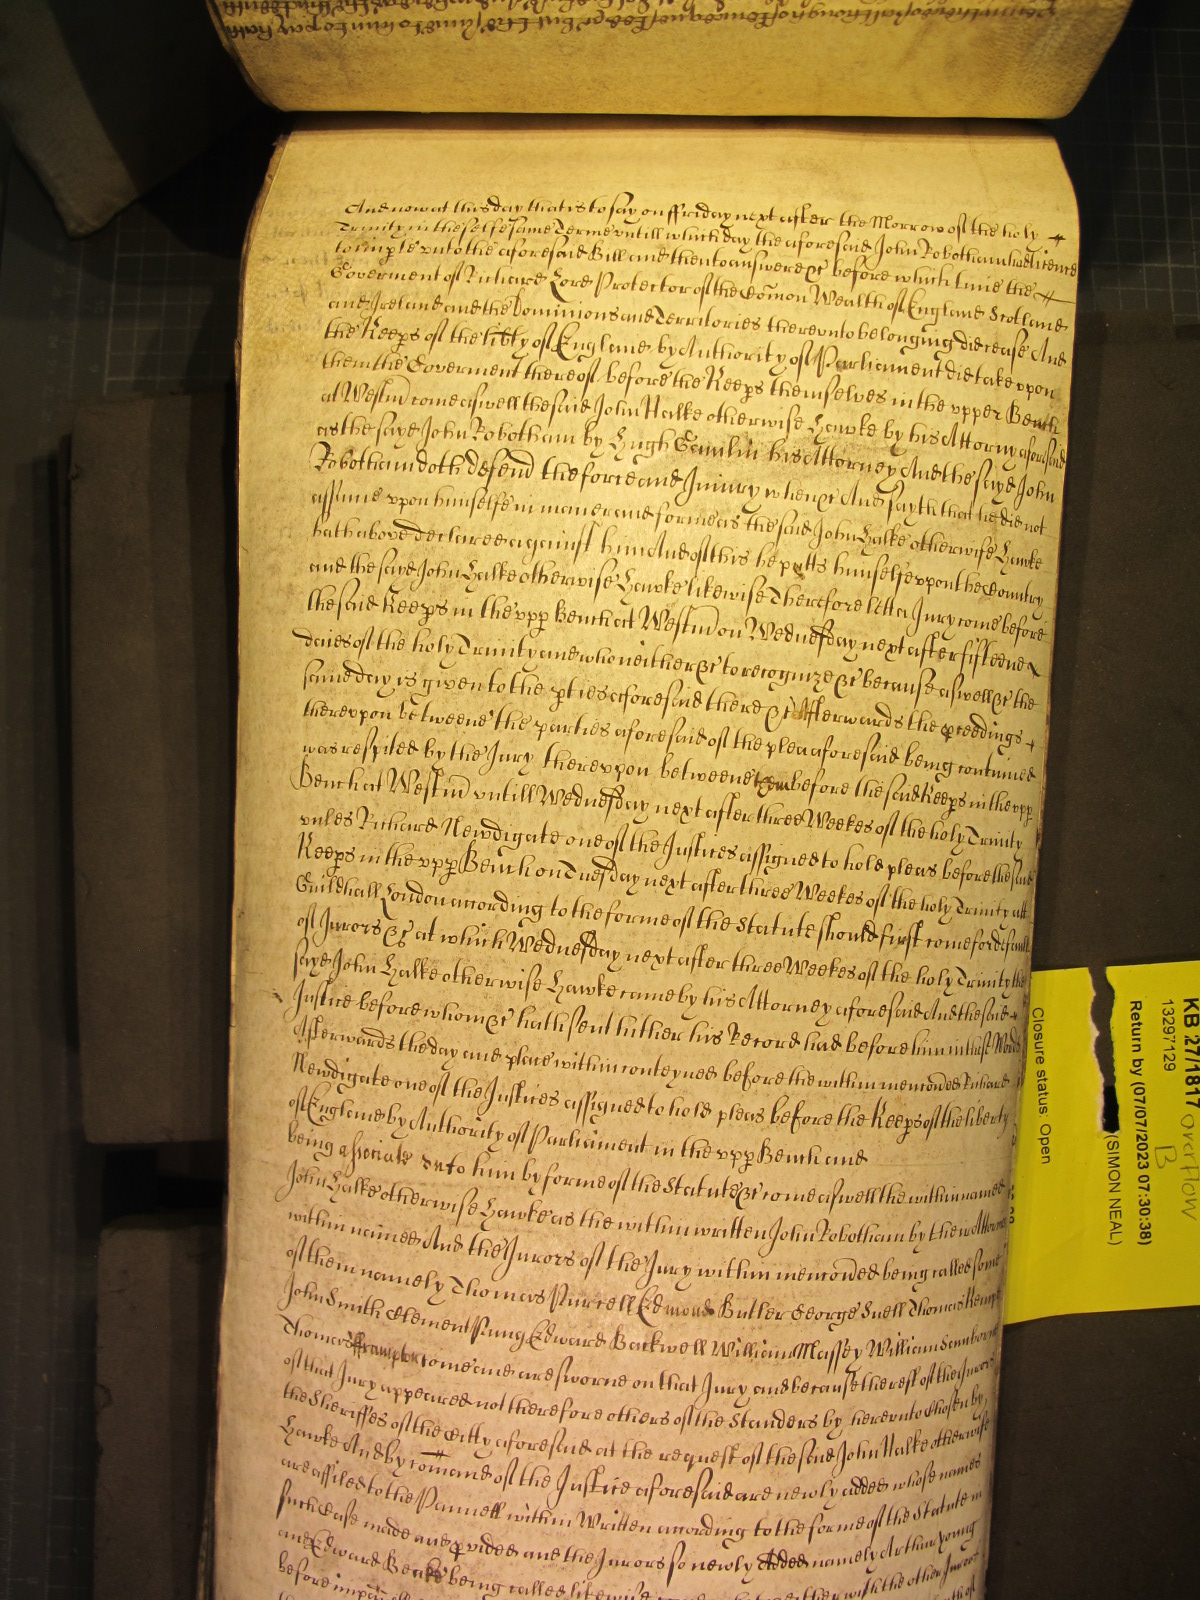 And now at this day that is to say on ffriday next after the Morrow of the holy
Trinity in the selfe same Terme untill which day the aforesaid John Robotham had licence
to imple unto the aforesaid Bill and then to answere &c before which time the
Goverment of Richard Lord Protector of the Comon Wealth of England Scotland
and Ireland and the Dominions and Territories thereunto belonging did cease And
the Keeps of the libty of England by Authority of Parliament did take upon
them the Goverment thereof before the Keeps themselves in the upper Bench
at Westm come aswell the said John Halke otherwise Hawke by his Attorny aforesaid
as the sayd John Robotham by Hugh his Attorney And the sayd John
Robotham doth defend the force and Iniury when &c And sayth that he did not
assume upon himselfe in maner and forme as the said John Halke otherwise Hawke
hath above declared against him And of this he putts himselfe upon the Country
and the sayd John Halke otherwise Hawke likewise Therefore lett a Jury come before
the said Keeps in the upp Bench at Westm on Wednesday next after fifteene
daies of the holy Trinity and who neither &c to recognize &c because aswell &c the
same day is given to the pties aforesaid there &c Afterwards the pceedings
thereupon betweene the parties aforesaid of the plea aforesaid being continued
was respited by the Jury thereupon betweene them before the said Keeps in the upp
Bench at Westm untill Wednesday next after three Weekes of the holy Trinity
unles Richard Newdigate one of the Justices assigned to hold pleas before the said
Keeps in the upp Bench on Tuesday next after three Weekes of the holy Trinity att
Guildhall London according to the forme of the Statute should first come for default
of Jurors &c at which Wednesday next after three Weekes of the holy Trinity the
sayd John Halke otherwise Hawke came by his Attorney aforesaid And the said
Justice before whom &c hath sent hither his Record had before him in these Words
Afterwards the day and place within conteyned before the within mencoed Richard
Newdigate one of the Justices assigned to hold pleas before the Keeps of the liberty
of England by Authority of Parliament in the upp Bench and
being associate unto him by forme of the Statute &c come aswell the within named
John Halke otherwise Hawke as the within written John Robotham by their Attorneys
within named And the Jurors of the Jury within mencoed being called some
of them namely Thomas Purcell Edmond Butler George Snell Thomas Kempe
John Smith Clement Pung Edward Backwell William Massey William
Thomas fframpton come and are sworne on that Jury and because the rest of the Jurors
of that Jury appeared not therefore others of the Standers by hereunto chosen by
the Sheriffes of the Citty aforesaid at the request of the said John Halke otherwise
Hawke And by comand of the Justice aforesaid are newly added whose names
are affiled to the Pannell within Written according to the forme of the Statute in
such Case made and pvided and the Jurors so newly Added namely Arthur Young
and Edward being called likewise with the other Jurors
before
KB 27/1817 overflow
B
13297129
Return by (07/07/2023 07:30:38)
(SIMON NEAL)
Closure status: Open